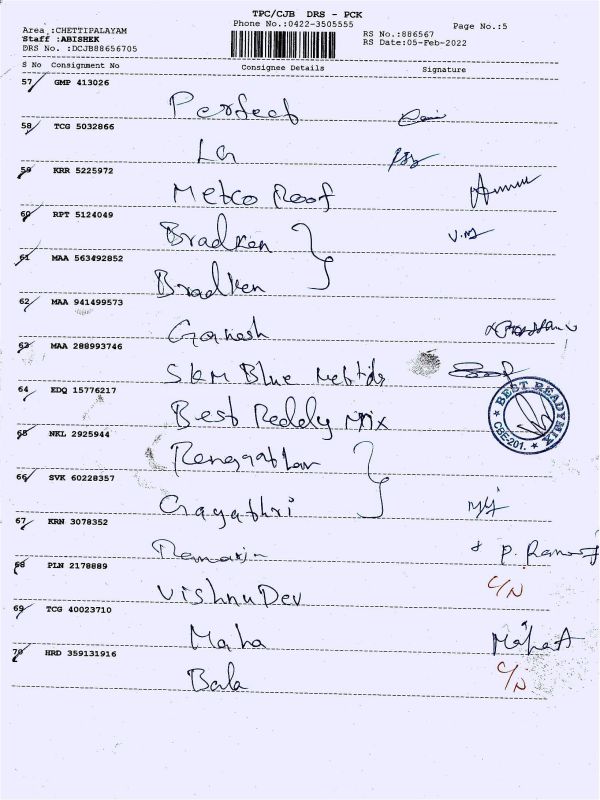 TPC/CJB DRS - PCK
Phone No.:0422-3505555
Page No.:5
Area :CHETTIPALAYAM
Staff :ABISHEK
DRS No. :DCJB88656705
RS No.:886567
RS Date:05-Feb-2022
S No Consignment No Consignee Details Signature
57 GMP 413026
Perfect
58 TCG 5032866
LG
59 KRR 5225972
Metco Roof
60 RPT 5124049
Bradken V.M
61 MAA 563492852
Bradken
62 MAA 941499573
Ganesh
63 MAA 288993746
SKM Blue
64 EDQ 15776217
Best Reddy Mix
BEST READYMIX
CBE-201.
65 NKL 2925944
66 SVK 60228357
Gayathri
67 KRN 3078352
68 PLN 2178889
VishnuDev C/N
69 TCG 40023710
Maha
70 HRD 359131916
Bala C/N